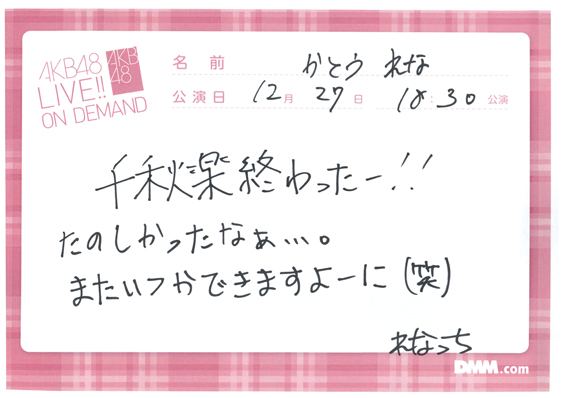 AKB48
LIVE!!
ON DEMAND
AKB
48
名前 かとう れな
公演日 12月 27日 18:30 公演
千秋楽終わったー!!
たのしかったなぁ…。
またいつかできますよーに(笑)
れなっち
DMM.com